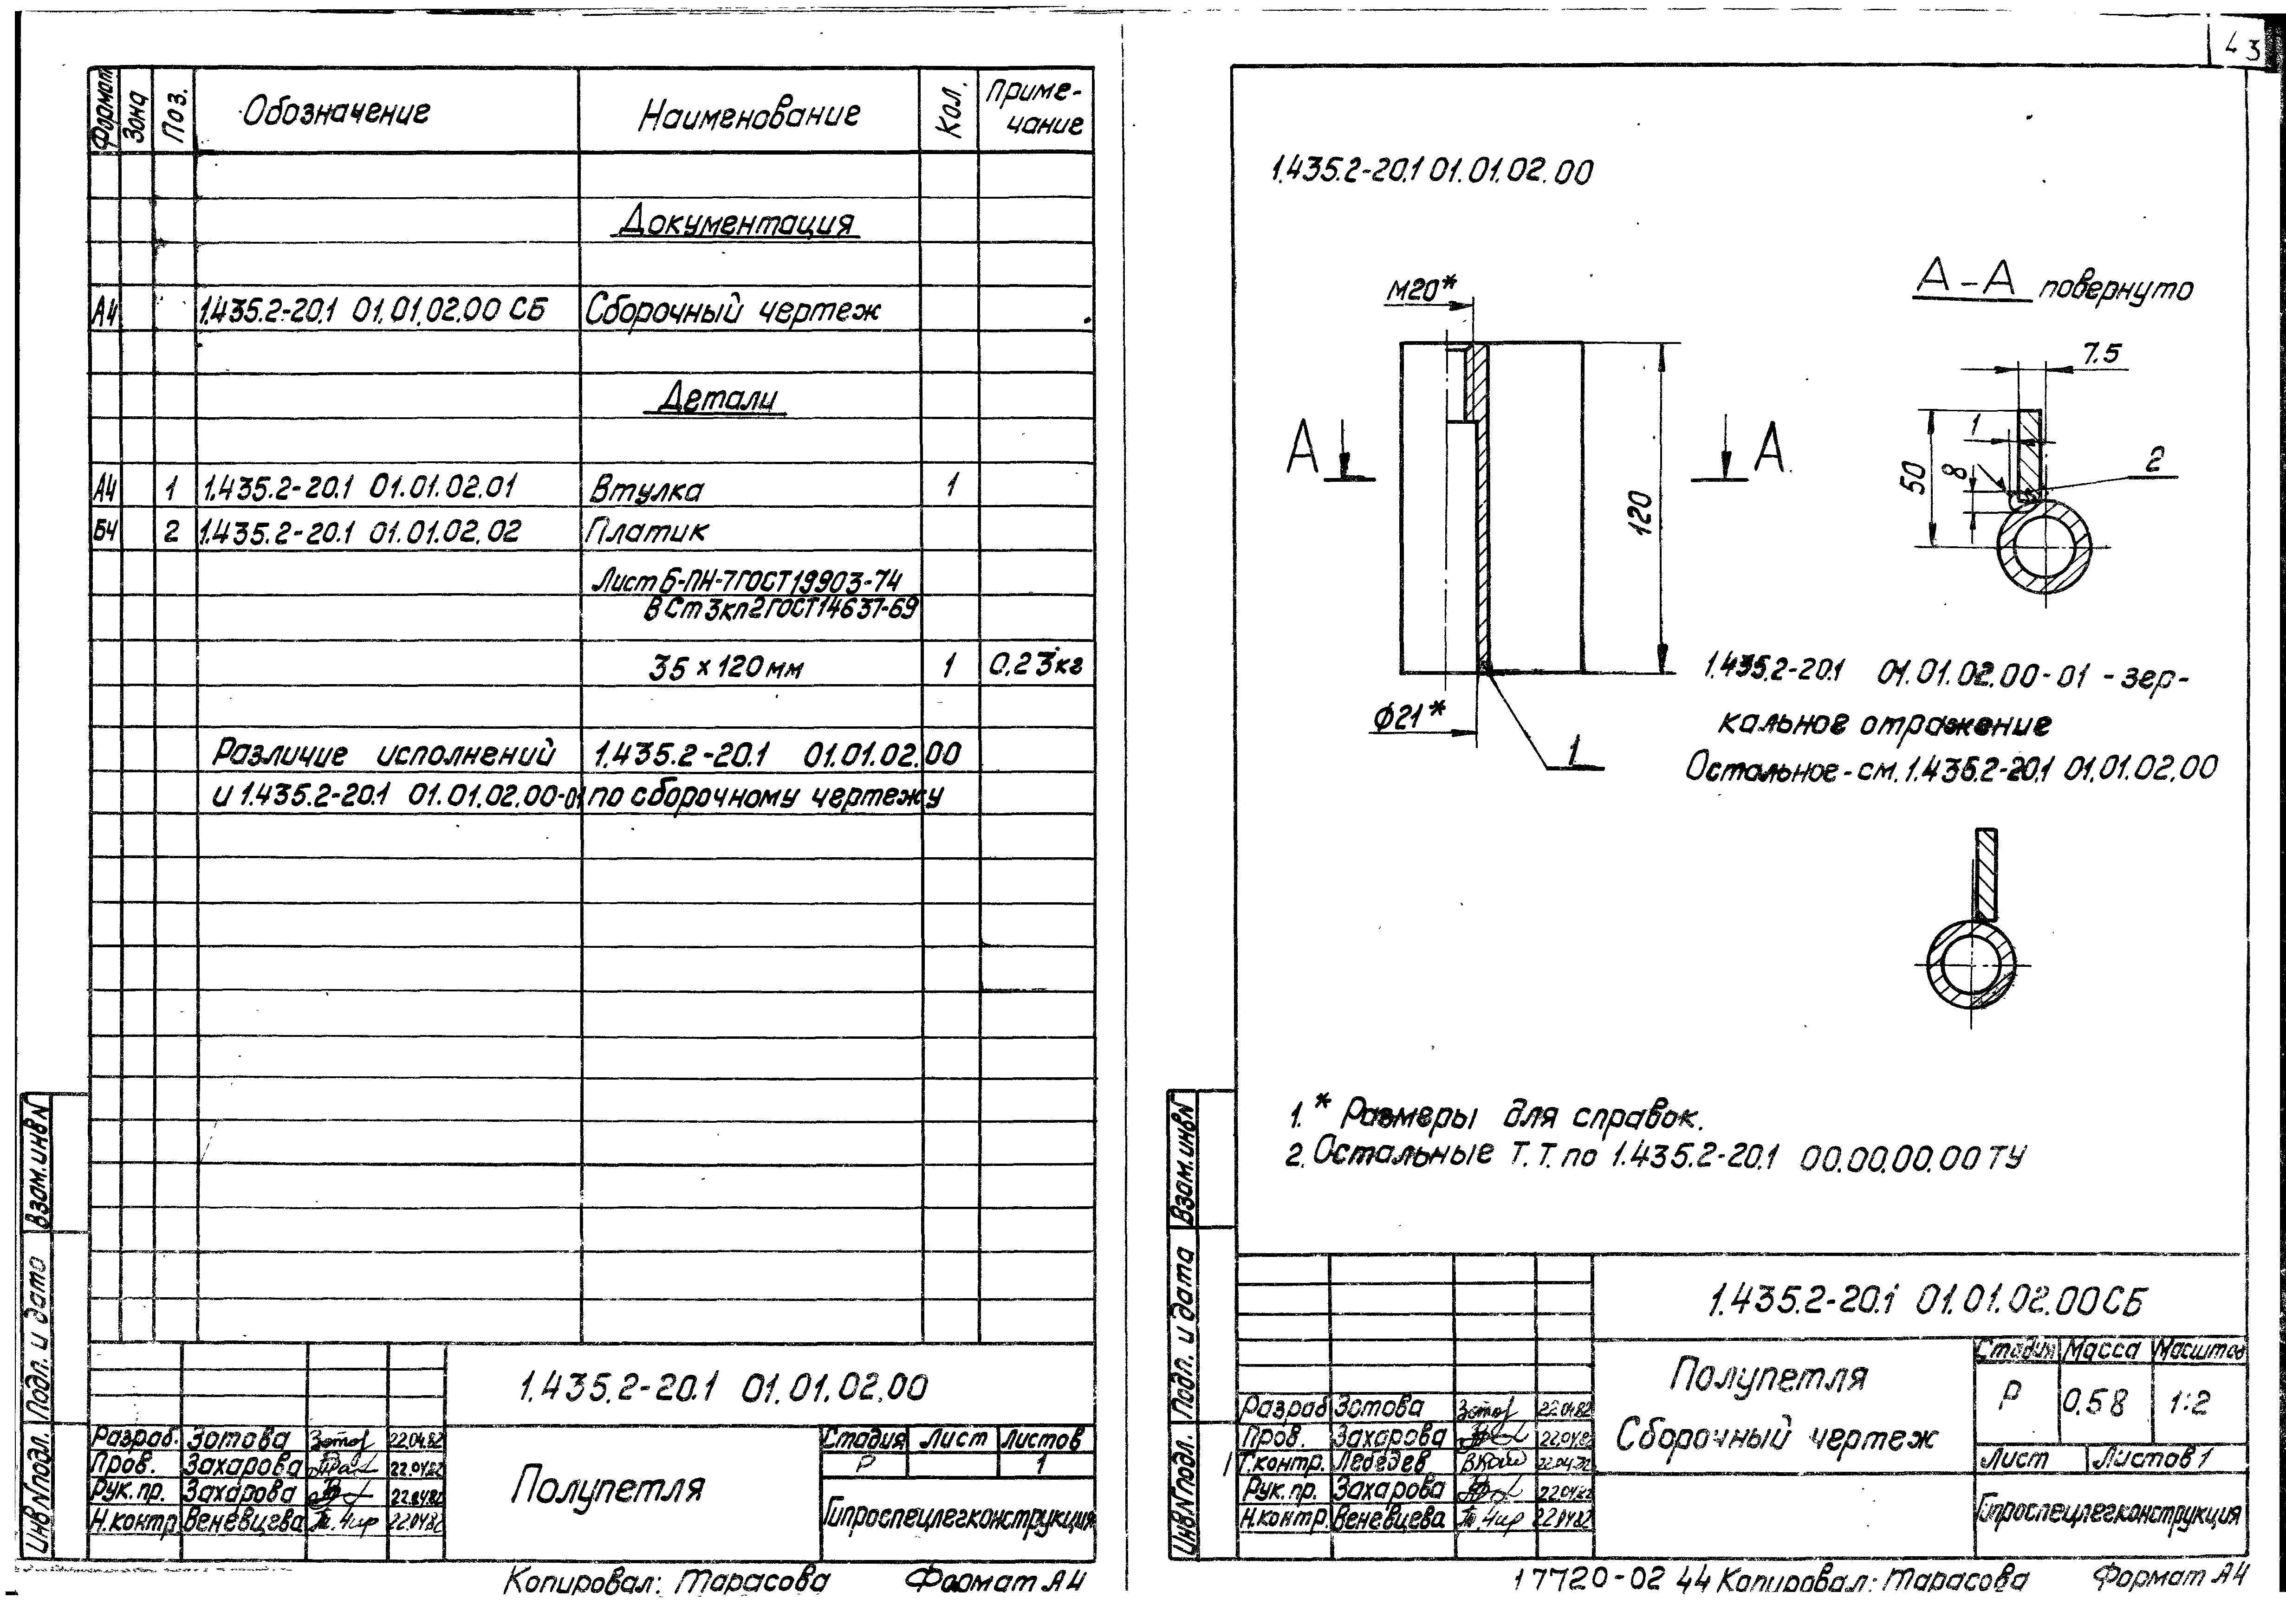 Формат Зона Поз. Обозначение Наименование Кол. Приме-
чание
Документация
А4 1.435.2-20.1 01.01.02.00 СБ Сборочный чертеж
Детали
А4 1 1.435.2-20.1 01.01.02.01 Втулка 1
БЧ 2 1.435.2-20.1 01.01.02.02 Платик
Лист Б-ПН-7 ГОСТ 19903-74
ВСт3кп2 ГОСТ 14637-69
35 х 120 мм 1 0,23 кг
Различие исполнений 1.435.2-20.1 01.01.02.00
и 1.435.2-20.1 01.01.02.00-01 по сборочному чертежу
Взам.инв№
Подп. и дата
Инв№подл.
1.435.2-20.1 01.01.02.00
Разраб. Зотова 22.04.82
Пров. Захарова 22.04.82
Рук.пр. Захарова 22.04.82
Н.контр Веневцева 22.04.82
Полупетля
Стадия Лист Листов
Р 1
Гипроспецлегконструкция
Копировал: Тарасова Формат А4
43
1.435.2-20.1 01.01.02.00
М20*
А А
120
Ф21*
1
А-А повернуто
7.5
1
50
8
2
1.435.2-20.1 01.01.02.00-01 - зер-
кальное отражение
Остальное - см. 1.435.2-20.1 01.01.02.00
1. * Размеры для справок.
2. Остальные Т.Т. по 1.435.2-20.1 00.00.00.00 ТУ
Взам.инв№
Подп. и дата
Инв№подл.
1.435.2-20.1 01.01.02.00СБ
Разраб Зотова 22.04.82
Пров. Захарова 22.04.82
Т.контр. Лебедев 22.04.82
Рук.пр. Захарова 22.04.82
Н.контр. Веневцева 22.04.82
Полупетля
Сборочный чертеж
Стадия Масса Масштаб
Р 0.58 1:2
Лист Листов 1
Гипроспецлегконструкция
17720-02 44 Копировал: Тарасова Формат А4